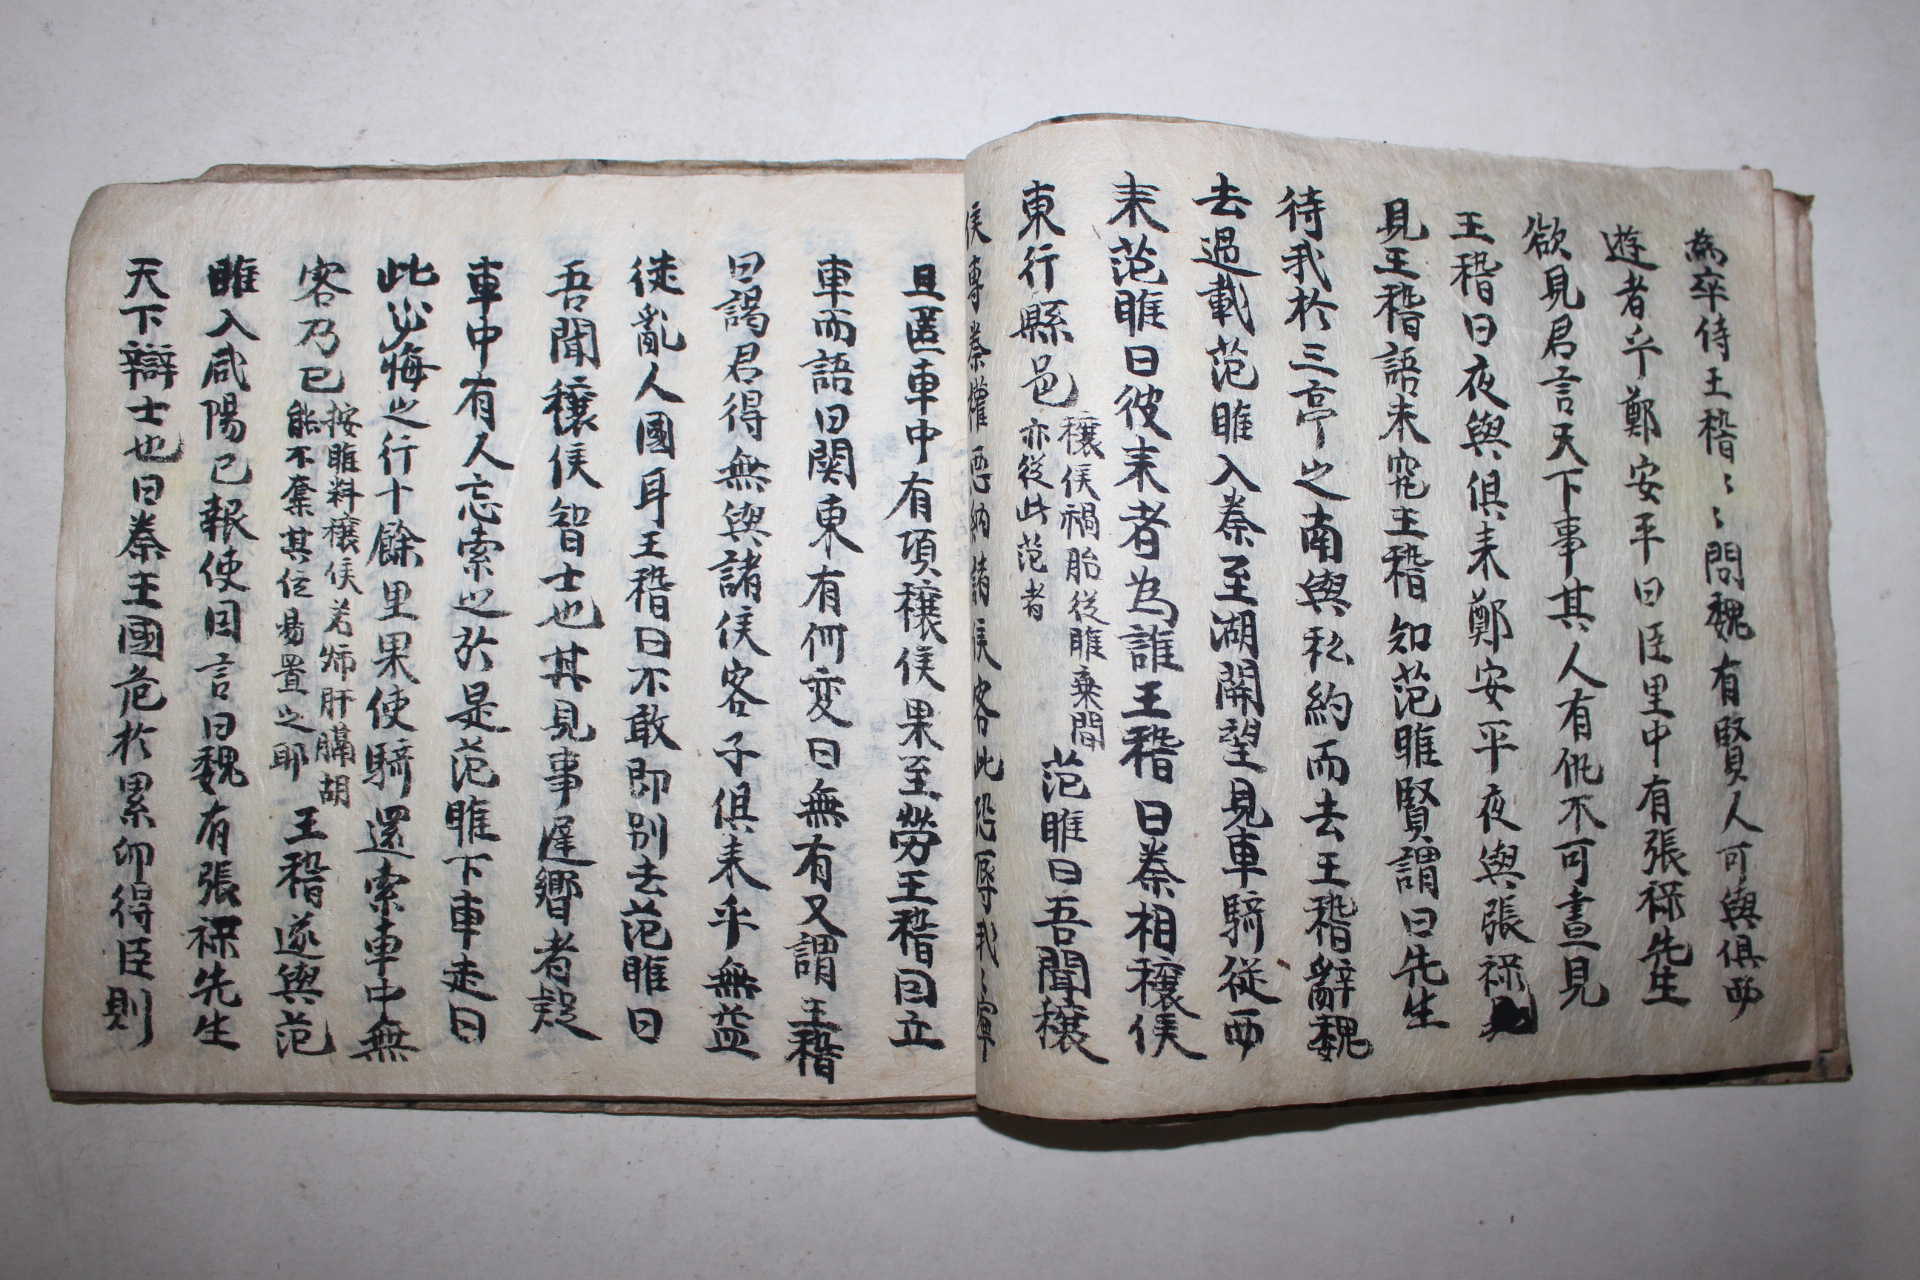 為卒侍王稽〻〻問魏有賢人可與俱西
遊者乎鄭安平曰臣里中有張祿先生
欲見君言天下事其人有仇不可晝見
王稽曰夜與俱來鄭安平夜與張祿
見王稽語未究王稽知范睢賢謂曰先生
待我於三亭之南與私約而去王稽辭魏
去過載范睢入秦至湖關望見車騎從西
來范睢曰彼來者為誰王稽曰秦相穰侯
東行縣邑
穰侯禍胎從睢乘間
亦從此范者
范睢曰吾聞穰
侯專秦權惡納諸侯客此恐辱我〻寧
且匿車中有頃穰侯果至勞王稽因立
車而語曰関東有何変曰無有又謂王稽
曰謁君得無與諸侯客子俱來乎無益
徒亂人國耳王稽曰不敢即別去范睢曰
吾聞穰侯智士也其見事遲嚮者疑
車中有人忘索之於是范睢下車走曰
此必悔之行十餘里果使騎還索車中無
客乃已
按睢料穰侯若 肝膈胡
能不奪其位易置之耶
王稽遂與范
睢入咸陽已報使因言曰魏有張祿先生
天下辯士也曰秦王國危於累卵得臣則